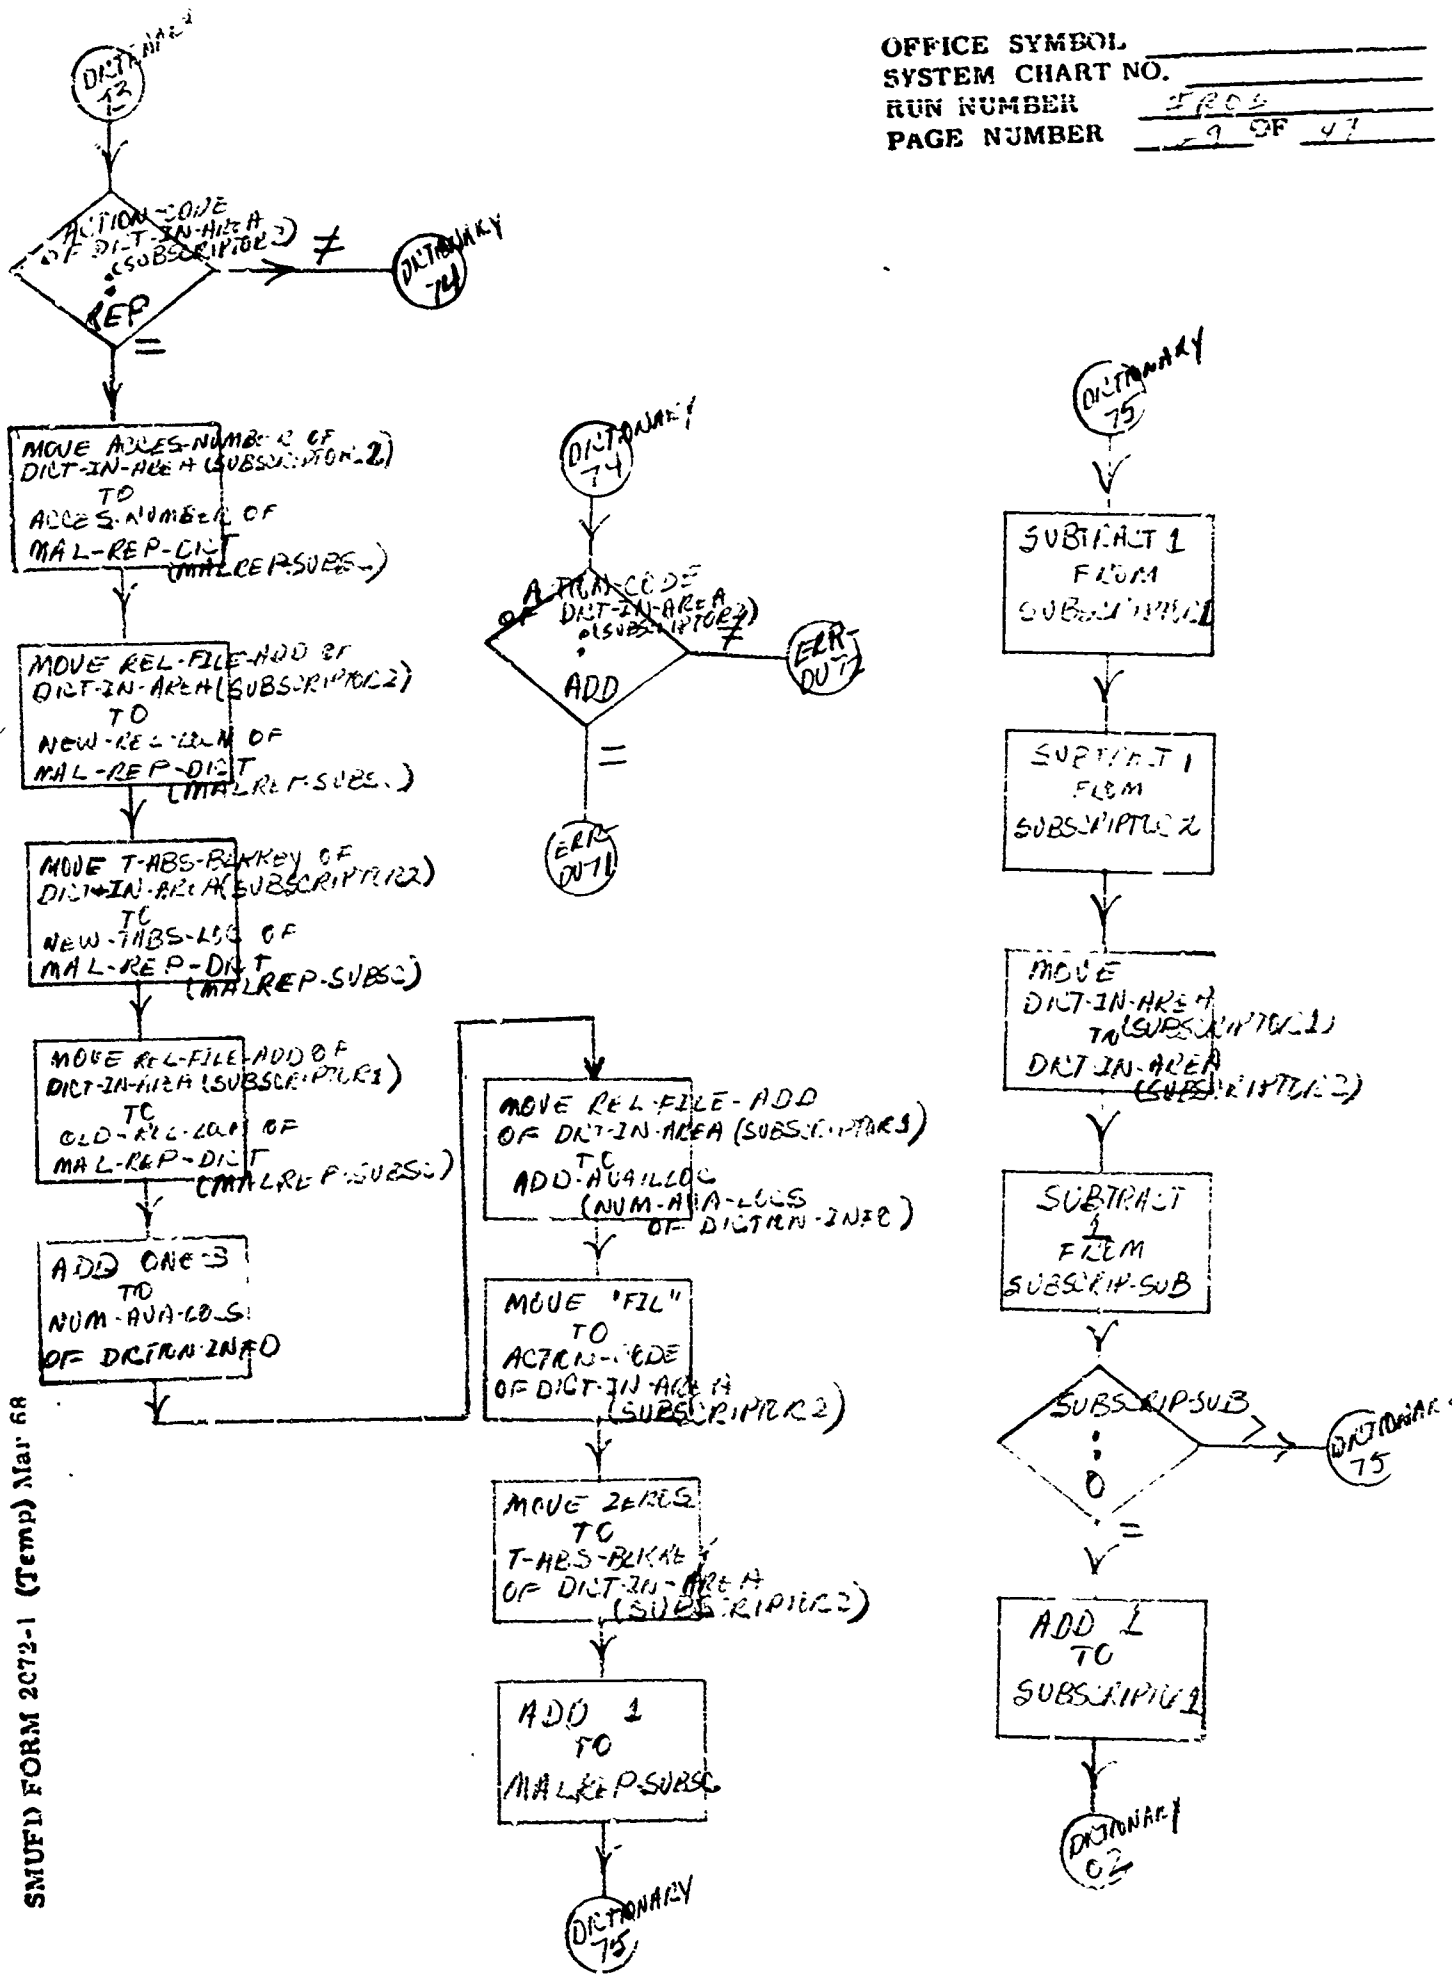 OFFICE SYMBOL
SYSTEM CHART NO.
RUN NUMBER
PAGE NUMBER OF
DICTIONARY
73
ACTION-CODE
OF DICT-IN-AREA
(SUBSCRIPTOR2)
:
REP
≠
DICTIONARY
74
=
MOVE ACCES-NUMBER OF
DICT-IN-AREA (SUBSCRIPTOR2)
TO
ACCES-NUMBER OF
MAL-REP-DICT
(MALREP-SUBSC)
MOVE REL-FILE-ADD OF
DICT-IN-AREA (SUBSCRIPTOR2)
TO
NEW-REL-LOCN OF
MAL-REP-DICT
(MALREP-SUBSC)
MOVE T-ABS-BLKKEY OF
DICT-IN-AREA (SUBSCRIPTOR2)
TO
NEW-TABS-LOC OF
MAL-REP-DICT
(MALREP-SUBSC)
MOVE REL-FILE-ADD OF
DICT-IN-AREA (SUBSCRIPTOR1)
TO
OLD-REL-LOCN OF
MAL-REP-DICT
(MALREP-SUBSC)
ADD ONE-3
TO
NUM-AVA-LOCS
OF DICTRN-INFO
DICTIONARY
74
ACTION-CODE
OF DICT-IN-AREA
(SUBSCRIPTOR2)
:
ADD
≠
ERR-
DUT2
=
ERR-
DUT1
MOVE REL-FILE-ADD
OF DICT-IN-AREA (SUBSCRIPTOR1)
TO
ADD-AVAILLOC
(NUM-AVA-LOCS
OF DICTRN-INFO)
MOVE "FIL"
TO
ACTION-CODE
OF DICT-IN-AREA
(SUBSCRIPTOR2)
MOVE ZEROS
TO
T-ABS-BLKKEY
OF DICT-IN-AREA
(SUBSCRIPTOR2)
ADD 1
TO
MALREP-SUBSC
DICTIONARY
75
DICTIONARY
75
SUBTRACT 1
FROM
SUBSCRIPTOR1
SUBTRACT 1
FROM
SUBSCRIPTOR2
MOVE
DICT-IN-AREA
TO (SUBSCRIPTOR1)
DICT-IN-AREA
(SUBSCRIPTOR2)
SUBTRACT
1
FROM
SUBSCRIP-SUB
SUBSCRIP-SUB
:
0
>
DICTIONARY
75
=
ADD 1
TO
SUBSCRIPTOR1
DICTIONARY
02
SMUFD FORM 2072-1 (Temp) Mar 68